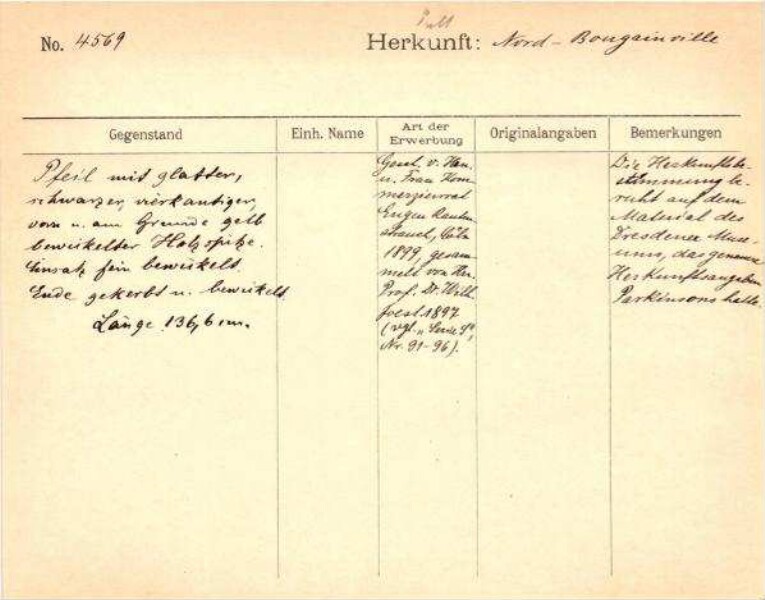 No. 4569
Herkunft: Nord-Bougainville
Gegenstand
Einh. Name
Art der Erwerbung
Originalangaben
Bemerkungen
Pfeil mit glatter,
schwarzer, vierkantiger,
vorn u. am Grunde gelb
bewickelter Holzspitze.
Einsatz fein bewickelt.
Ende gekerbt u. bewickelt.
Länge 136,6 cm.
Gesch. v. Hrn.
u. Frau Kom-
merzienrat
Eugen Rauten-
strauch, Cöln
1899, gesam-
melt von Hrn.
Prof. Dr. Wilh.
Joest 1897
(vgl. „Serie
Nr. 91-96).
Die Herkunftsbe-
stimmung be-
ruht auf dem
Material des
Dresdener Muse-
ums, das genaue
Herkunftsangaben
Parkinsons hatte.